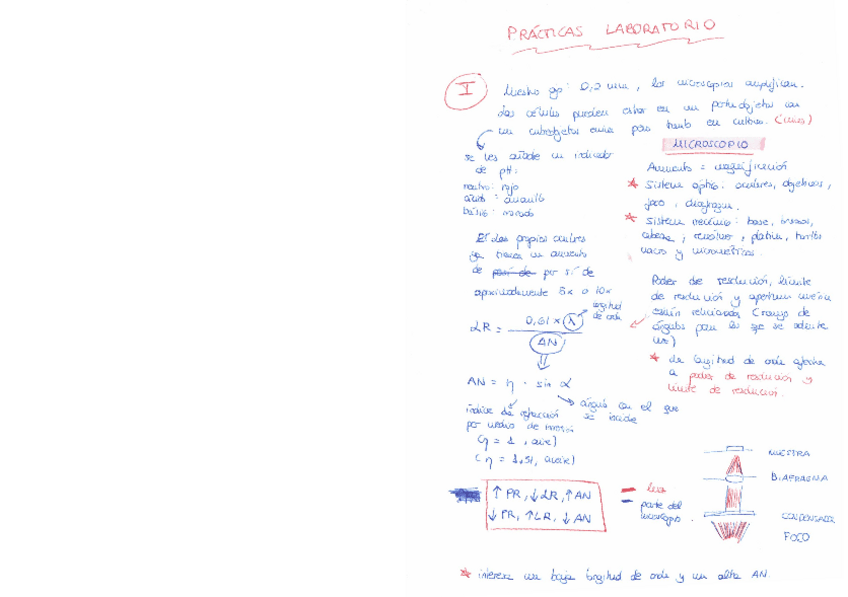 PRÁCTICAS LABORATORIO
I
Nuestro ojo: 0,2 mm, los microscopios amplifican.
Las células pueden estar en un portaobjetos con
un cubreobjetos encima pero también en cultivo. (vivas)
se les añade un indicador
de pH:
neutro: rojo
ácido: amarillo
básico: morado
MICROSCOPIO
Aumento = magnificación
* Sistema óptico: oculares, objetivos,
foco, diafragma.
* Sistema mecánico: base, brazo,
cabeza, revólver, platina, tornillo
macro y micrométrico.
Los propios oculares
ya tienen un aumento
de por sí de
aproximadamente 5x o 10x
LR = 0,61 × λ / AN
longitud
de onda
Poder de resolución, límite
de resolución y apertura numérica
están relacionados (rango de
ángulos para los que se admite
luz)
* La longitud de onda afecta
a poder de resolución y
límite de resolución.
AN = η · sin α
índice de refracción
por medio de inmersión
ángulo con el que
se incide
(η = 1, aire)
(η = 1,51, aceite)
↑ PR, ↓ LR, ↑ AN
↓ PR, ↑ LR, ↓ AN
luz
parte del
microscopio.
MUESTRA
DIAFRAGMA
CONDENSADOR
FOCO
* interesa una baja longitud de onda y un alta AN.